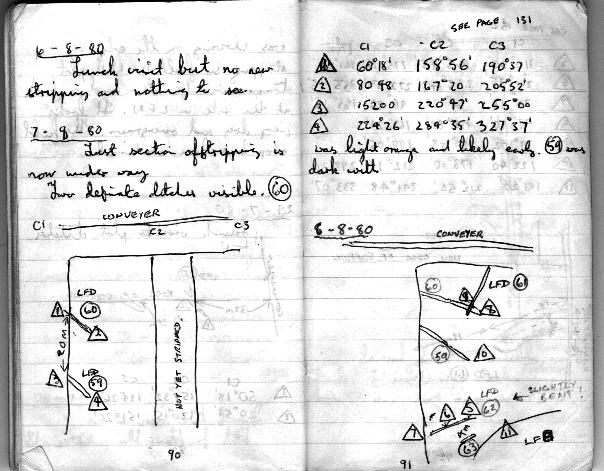 6-8-80
Lunch visit but no new
stripping and nothing to see.
7-8-80
Last section of stripping is
now under way
Two definate ditches visible. 60
CONVEYER
C1 C2 C3
1 LFD
60
2
20M
LFD
3 59
4
NOT YET STRIPPED.
90
SEE PAGE 131
C1 C2 C3
1 60°18' 158°56' 190°37'
2 80 48 167°20 205°52'
3 152 00 220°47' 255°00
4 229°26' 289°35' 327°37'
was light orange and likely early. 59 was
dark with
8-8-80
CONVEYER
60 LFD 61
8 9
59 10
LFD
7 6 5 62
SLIGHTLY
BENT!
63
11 LF
91